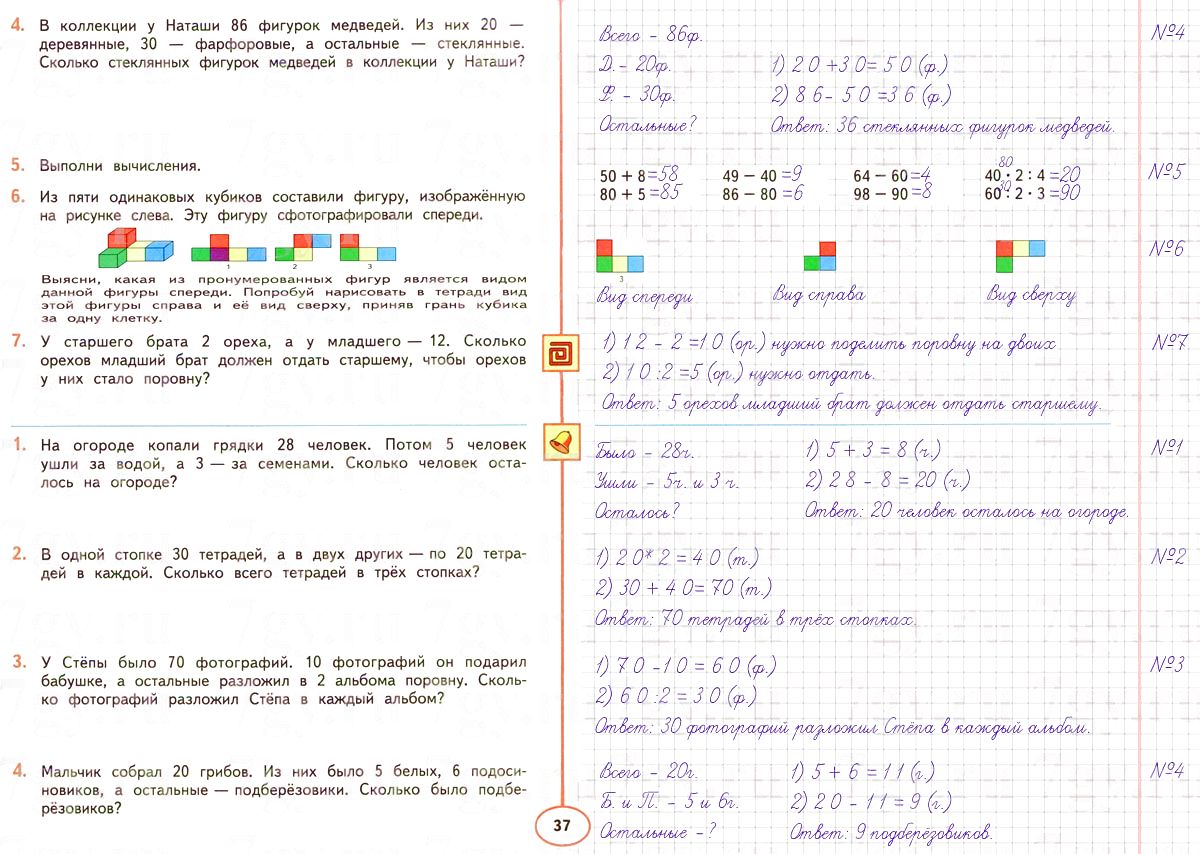 4. В коллекции у Наташи 86 фигурок медведей. Из них 20 —
деревянные, 30 — фарфоровые, а остальные — стеклянные.
Сколько стеклянных фигурок медведей в коллекции у Наташи?
5. Выполни вычисления.
6. Из пяти одинаковых кубиков составили фигуру, изображённую
на рисунке слева. Эту фигуру сфотографировали спереди.
1 2 3
Выясни, какая из пронумерованных фигур является видом
данной фигуры спереди. Попробуй нарисовать в тетради вид
этой фигуры справа и её вид сверху, приняв грань кубика
за одну клетку.
7. У старшего брата 2 ореха, а у младшего — 12. Сколько
орехов младший брат должен отдать старшему, чтобы орехов
у них стало поровну?
1. На огороде копали грядки 28 человек. Потом 5 человек
ушли за водой, а 3 — за семенами. Сколько человек оста-
лось на огороде?
2. В одной стопке 30 тетрадей, а в двух других — по 20 тетра-
дей в каждой. Сколько всего тетрадей в трёх стопках?
3. У Стёпы было 70 фотографий. 10 фотографий он подарил
бабушке, а остальные разложил в 2 альбома поровну. Сколь-
ко фотографий разложил Стёпа в каждый альбом?
4. Мальчик собрал 20 грибов. Из них было 5 белых, 6 подоси-
новиков, а остальные — подберёзовики. Сколько было подбе-
рёзовиков?
37
Всего - 86ф. №4
Д. - 20ф. 1) 20+30=50 (ф.)
Ф. - 30ф. 2) 86-50=36 (ф.)
Остальные? Ответ: 36 стеклянных фигурок медведей.
80
50 + 8=58 49 − 40=9 64 − 60=4 40 · 2 : 4=20 №5
30
80 + 5=85 86 − 80=6 98 − 90=8 60 : 2 · 3=90
№6
3
Вид спереди Вид справа Вид сверху
1) 12 - 2=10 (ор.) нужно поделить поровну на двоих №7
2) 10:2=5 (ор.) нужно отдать.
Ответ: 5 орехов младший брат должен отдать старшему.
Было - 28ч. 1) 5 + 3 = 8 (ч.) №1
Ушли - 5ч. и 3 ч. 2) 28 - 8 = 20 (ч.)
Осталось? Ответ: 20 человек осталось на огороде.
1) 20*2=40 (т.) №2
2) 30 + 40=70 (т.)
Ответ: 70 тетрадей в трёх стопках.
1) 70-10=60 (ф.) №3
2) 60:2=30 (ф.)
Ответ: 30 фотографий разложил Стёпа в каждый альбом.
Всего - 20г. 1) 5 + 6 = 11 (г.) №4
Б. и П. - 5 и 6г. 2) 20 - 11 = 9 (г.)
Остальные -? Ответ: 9 подберёзовиков.